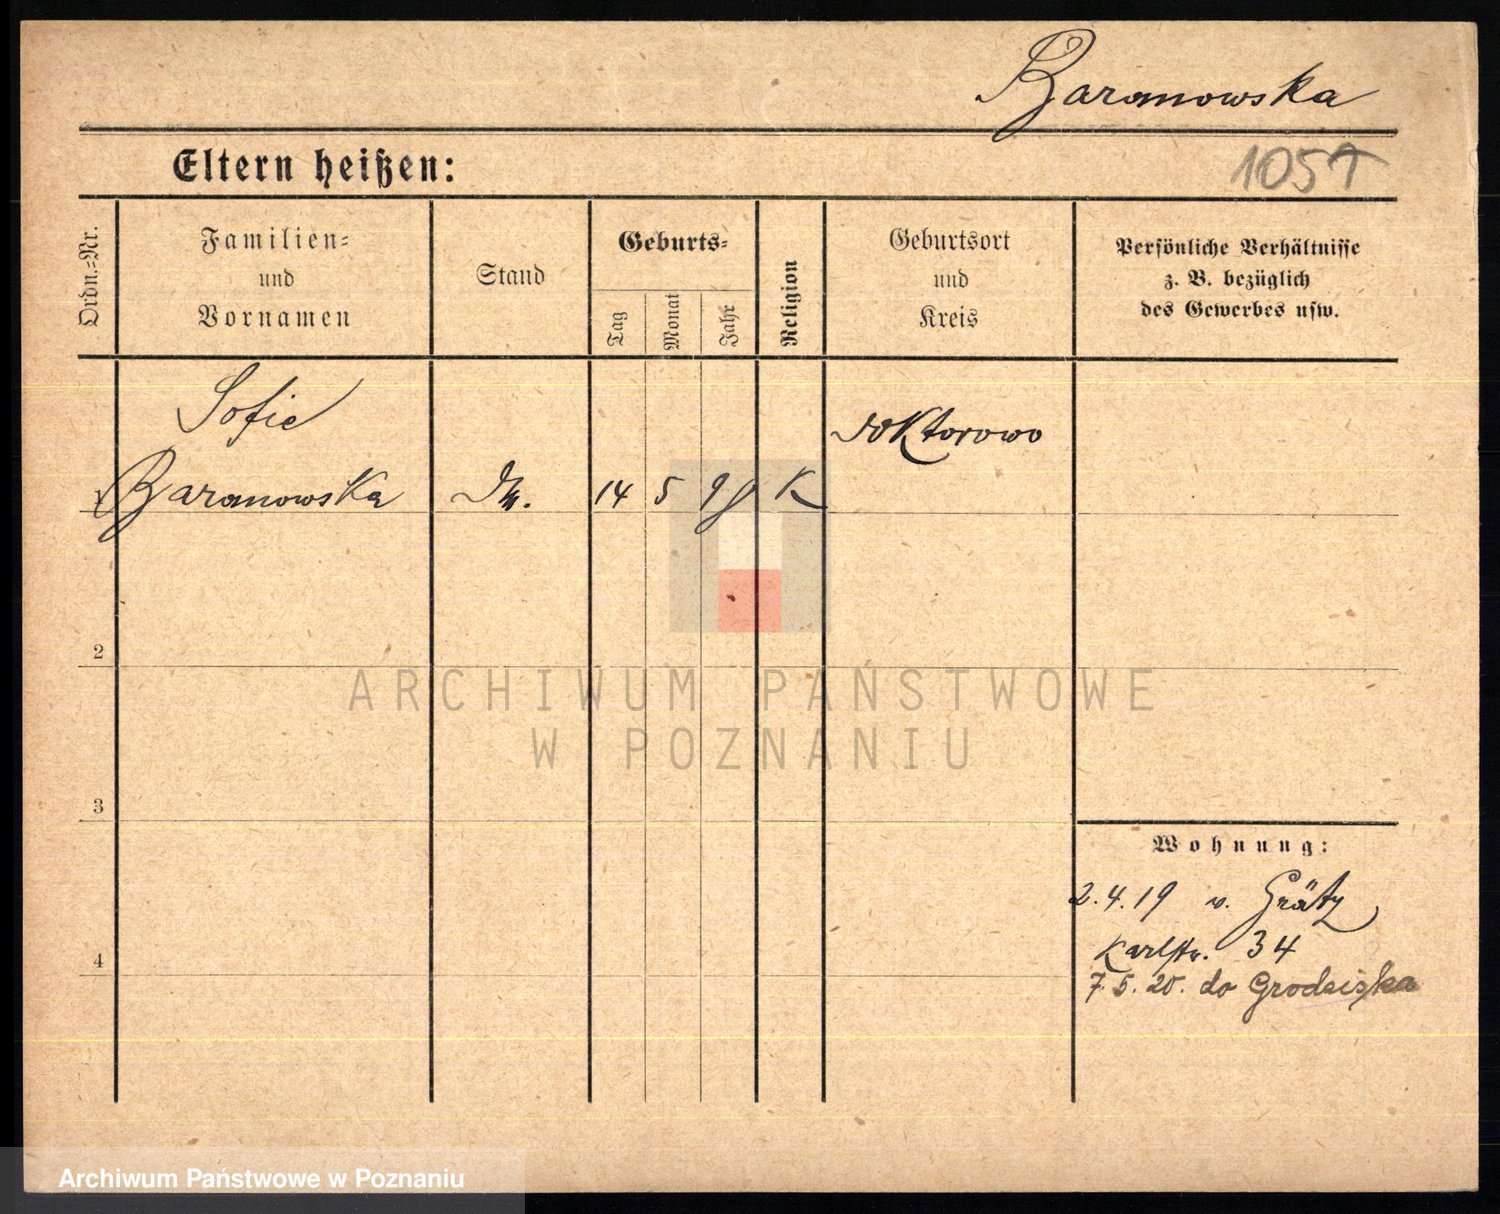 Baranowska
Eltern heißen:
Ordn.-Nr.
Familien-
und
Vornamen
Stand
Geburts-
Tag
Monat
Jahr
Religion
Geburtsort
und
Kreis
Persönliche Verhältnisse
z. B. bezüglich
des Gewerbes usw.
Sofie
Baranowska
14 5 98 K
Doktorowo
2
3
4
Wohnung:
2.4.19 v. Grätz
Karlstr. 34
7.5.20. do Grodziska
ARCHIWUM PAŃSTWOWE
W POZNANIU
Archiwum Państwowe w Poznaniu